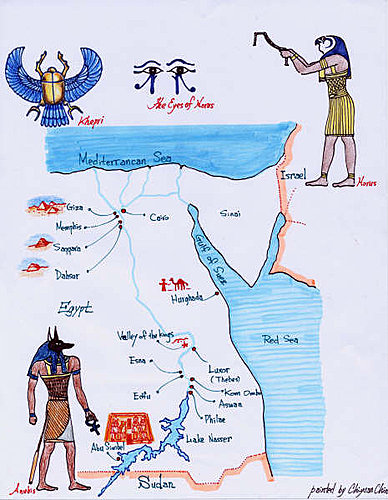 Khepri
The Eyes of Horus
Horus
Mediterranean Sea
Israel
Giza
Cairo
Sinai
Memphis
Saqqara
Dahsur
Gulf of Suez
Egypt
Hurghada
Red Sea
Valley of the Kings
Esna
Luxor
(Thebes)
Edfu
Kom Ombo
Aswan
Philae
Abu Simbel
Lake Nasser
Anubis
Sudan
painted by